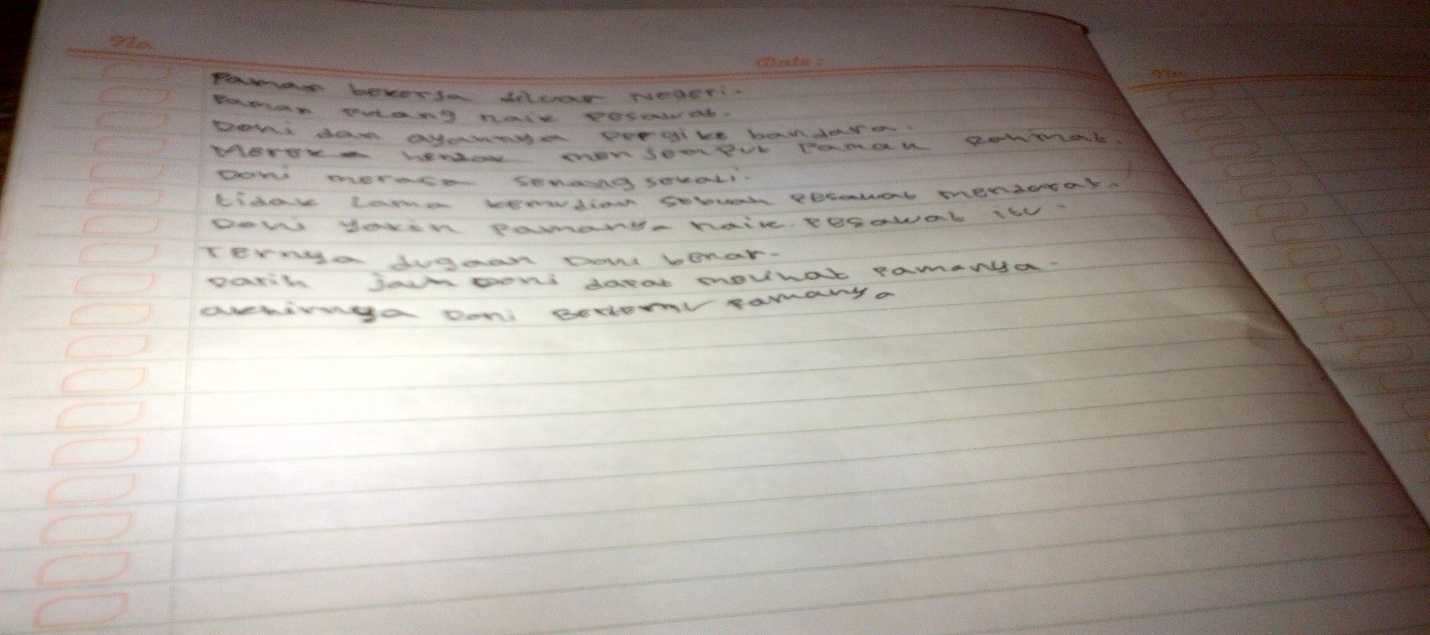 No
Date:
No
Paman bekerja diluar Negeri.
Paman Pulang naik Pesawat.
Doni dan ayahnya Pergi ke bandara.
Mereka hendak menjemput Paman Rahmat.
Doni merasa senang sekali.
tidak Lama kemudian sebuah Pesawat mendarat.
Doni yakin Pamanya naik Pesawat itu.
Ternya dugaan Doni benar.
Darih jauh Doni dapat melihat Pamanya.
akhirnya Doni Bertemu Pamanya